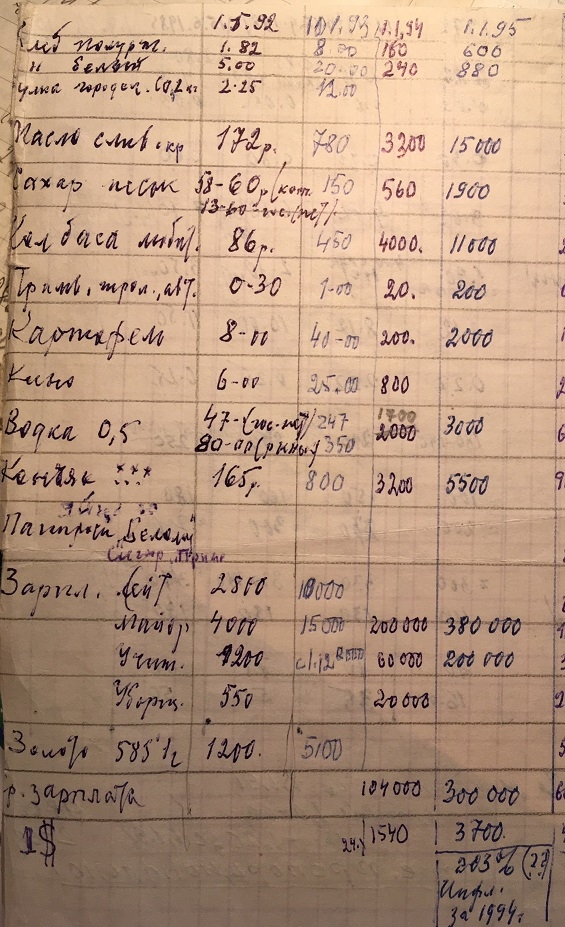 1.5.92 1.1.93 1.1.94 1.1.95
хлеб полург. 1.82 8.00 160 600
н белый 5.00 20.00 240 880
улка городск. (0,2 кг 2-25 12.00
Масло слив. кр 172р. 780 3200 15000
Сахар песок 58-60р(ком. 150 560 1900
13-60-гос.(нет).
Колбаса любит. 86р. 450 4000. 11000
Трамв., трол., авт. 0-30 1-00 20. 200
Картофель 8-00 40-00 200. 2000
Кино 6-00 25.00 800
1700
Водка 0,5 47-(гос-нет) 247 2000 3000
80-ор(рынок) 350
Коньяк *** 165р 800 3200 5500
Папиросы "Беломор"
Сигар. "Прима
Зарпл. Лейт 2500 10000
Майор 4000 15000 200000 380 000
Учит. 1200 с 1.12 60000 200 000
Уборщ. 550 20000
Золото 585 1г 1200. 5100
р. зарплата 104000 300 000
1$ 1540 3700.
203% (??)
Инфл.
за 1994г.